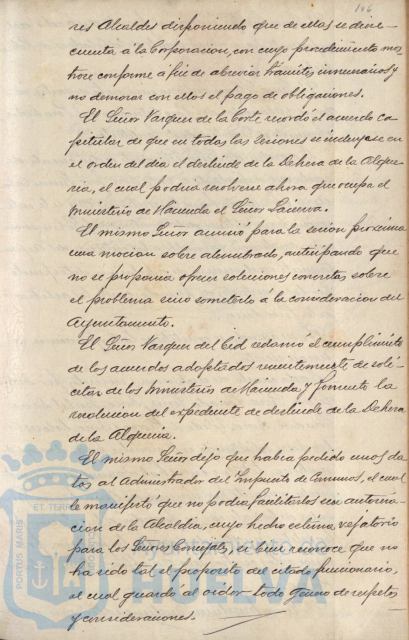 106
res Alcaldes disponiendo que de ellas se diese
cuenta á la Corporacion, con cuyo procedimiento
conforme á fin de abreviar trámites innecesarios y
no demorar con ellos el pago de obligaciones.
El Señor Vazquez de la Corte recordó el acuerdo ca-
pitular de que en todas las sesiones se incluyese en
el orden del dia el deslinde de la Dehesa de la Alque-
ria, el cual podria resolverse ahora que ocupa el
Ministerio de Hacienda el Señor Lacierva.
El mismo Señor anunció para la sesion próxima
una mocion sobre alumbrado, anticipando que
no se proponia ofrecer soluciones concretas sobre
el problema sino someterlo á la consideracion del
Ayuntamiento.
El Señor Vazquez del Cid reclamó el cumplimiento
de los acuerdos adoptados recientemente de soli-
citar de los Ministerios de Hacienda y Fomento la
resolucion del expediente de deslinde de la Dehesa
de la Alqueria.
El mismo Señor dijo que habia pedido unos da-
tos al Administrador del Impuesto de Consumos, el cual
le manifestó que no podia facilitarlos sin autoriza-
cion de la Alcaldia, cuyo hecho estima vejatorio
para los Señores Concejales, si bien reconoce que no
ha sido tal el propósito del citado funcionario,
el cual guardó al todo género de respetos
y consideraciones.
PORTUS MARIS
ET TERRAE
HUELVA